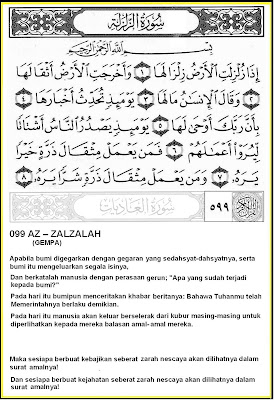 سُورَةُ الزَّلْزَلَةِ
بِسْمِ اللَّهِ الرَّحْمَٰنِ الرَّحِيمِ
إِذَا زُلْزِلَتِ الْأَرْضُ زِلْزَالَهَا ١ وَأَخْرَجَتِ الْأَرْضُ أَثْقَالَهَا
٢ وَقَالَ الْإِنسَٰنُ مَالَهَا ٣ يَوْمَئِذٍ تُحَدِّثُ أَخْبَارَهَا ٤
بِأَنَّ رَبَّكَ أَوْحَىٰ لَهَا ٥ يَوْمَئِذٍ يَصْدُرُ النَّاسُ أَشْتَاتًا
لِّيُرَوْا أَعْمَٰلَهُمْ ٦ فَمَن يَعْمَلْ مِثْقَالَ ذَرَّةٍ خَيْرًا
يَرَهُ ٧ وَمَن يَعْمَلْ مِثْقَالَ ذَرَّةٍ شَرًّا يَرَهُ ٨
سُورَةُ الْعَادِيَاتِ
٥٩٩
099 AZ – ZALZALAH
(GEMPA)
Apabila bumi digegarkan dengan gegaran yang sedahsyat-dahsyatnya, serta
bumi itu mengeluarkan segala isinya,
Dan berkatalah manusia dengan perasaan gerun; "Apa yang sudah terjadi
kepada bumi?"
Pada hari itu bumipun menceritakan khabar beritanya: Bahawa Tuhanmu telah
Memerintahnya berlaku demikian.
Pada hari itu manusia akan keluar berselerak dari kubur masing-masing untuk
diperlihatkan kepada mereka balasan amal-amal mereka.
Maka sesiapa berbuat kebajikan seberat zarah nescaya akan dilihatnya dalam
surat amalnya!
Dan sesiapa berbuat kejahatan seberat zarah nescaya akan dilihatnya dalam
surat amalnya!